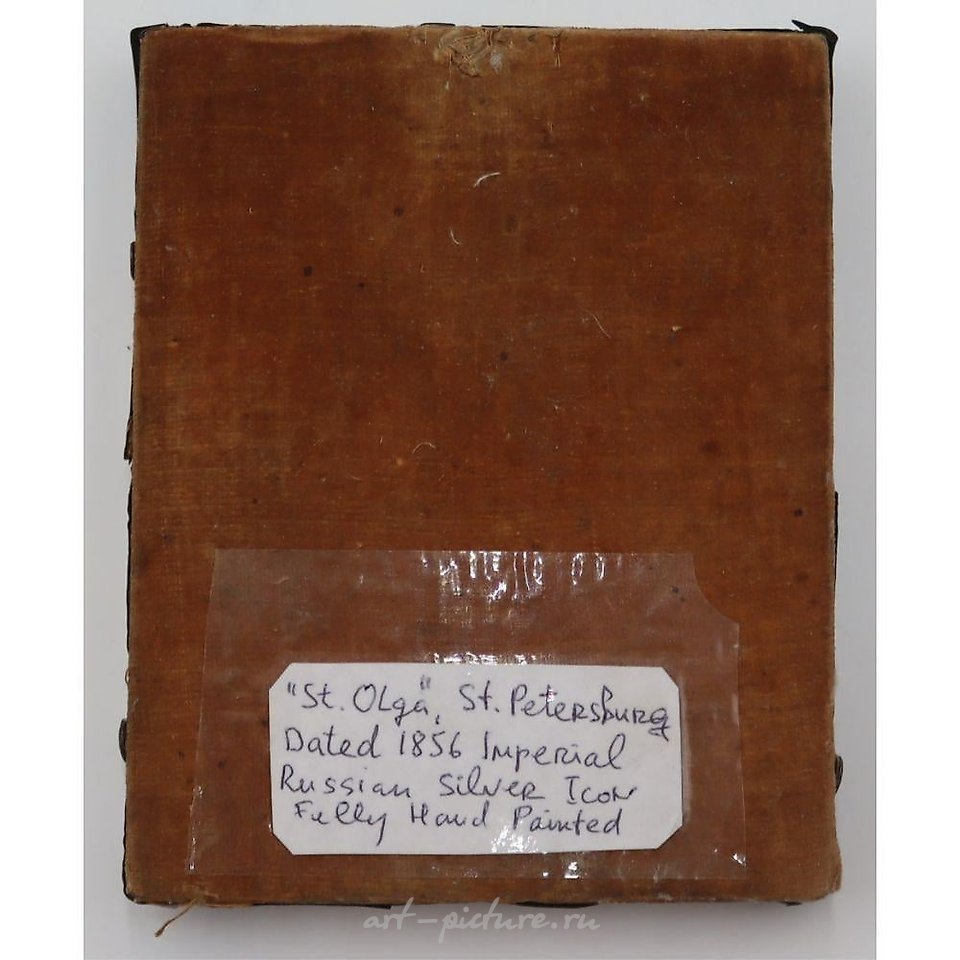 "St. Olga", St. Petersburg
Dated 1856 Imperial
Russian Silver Icon
Fully Hand Painted
art-picture.ru